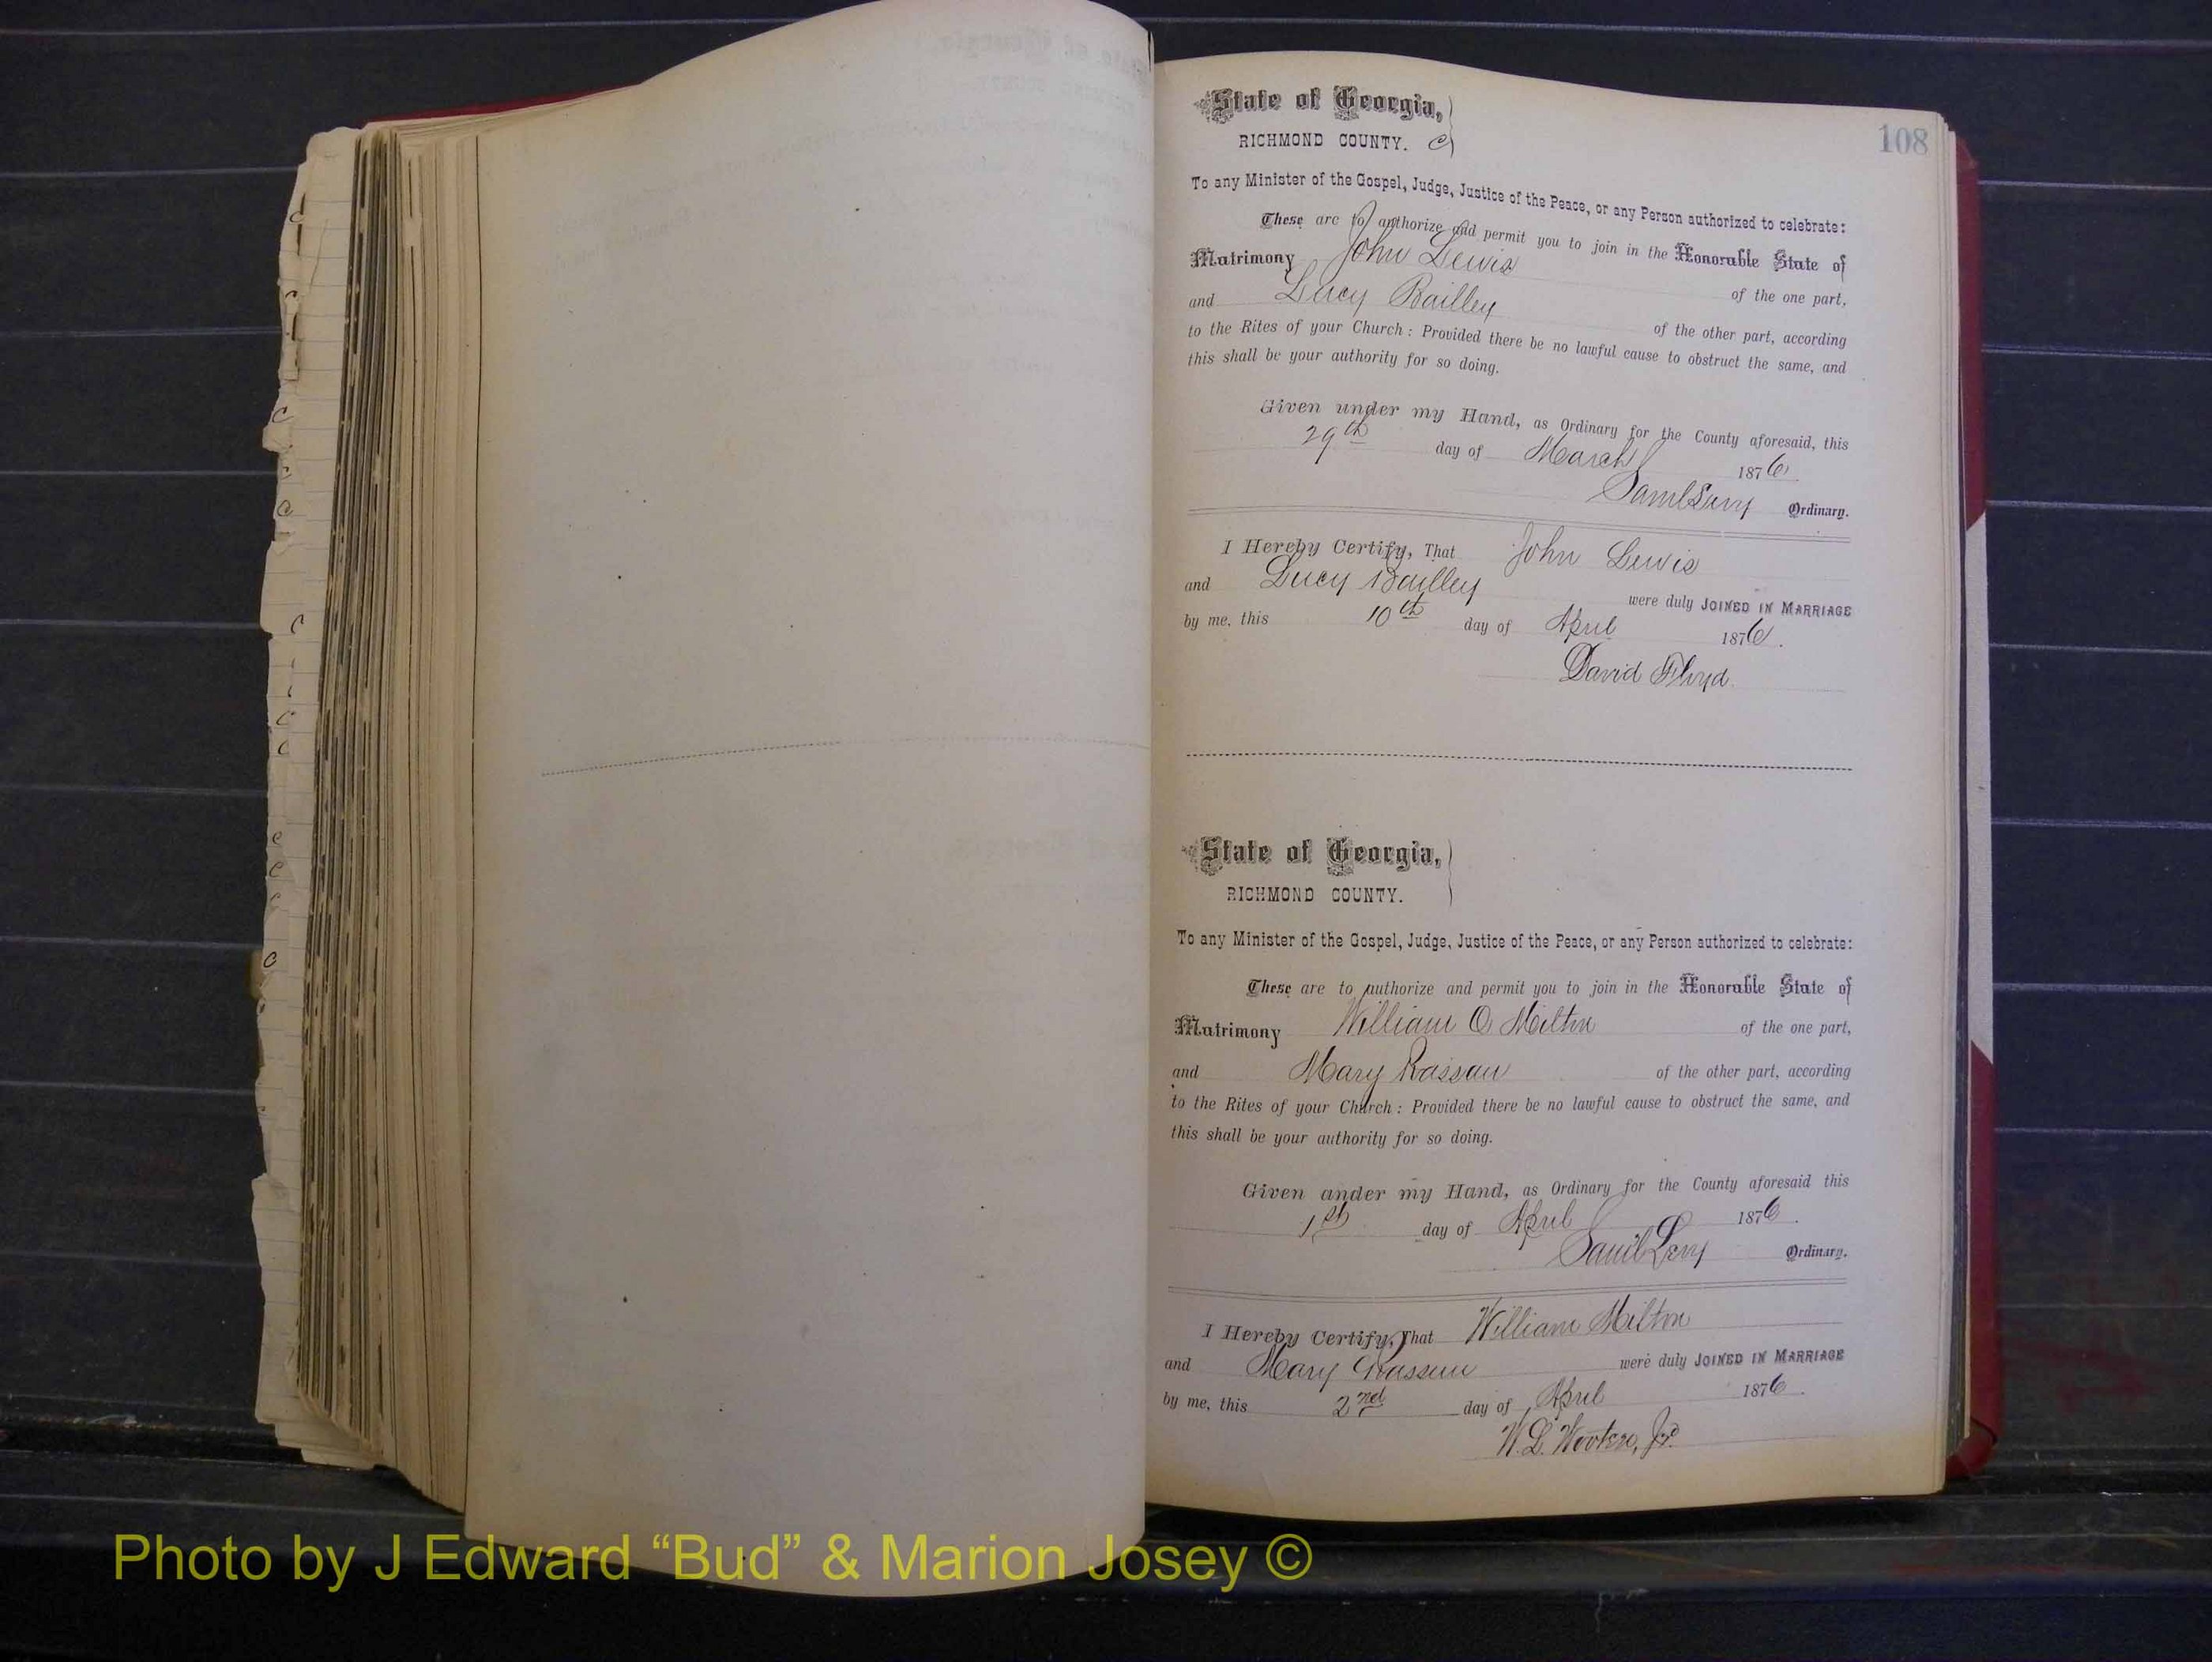 108
State of Georgia,
RICHMOND COUNTY. C
To any Minister of the Gospel, Judge, Justice of the Peace, or any Person authorized to celebrate:
These are to authorize and permit you to join in the Honorable State of
Matrimony John Lewis of the one part,
and Lucy Bailley of the other part, according
to the Rites of your Church: Provided there be no lawful cause to obstruct the same, and
this shall be your authority for so doing.
Given under my Hand, as Ordinary for the County aforesaid, this
29th day of March 1876.
Saml Levy Ordinary.
I Hereby Certify, That John Lewis
and Lucy Bailley were duly JOINED IN MARRIAGE
by me, this 10th day of April 1876.
David Floyd.
State of Georgia,
RICHMOND COUNTY.
To any Minister of the Gospel, Judge, Justice of the Peace, or any Person authorized to celebrate:
These are to authorize and permit you to join in the Honorable State of
Matrimony William O Milton of the one part,
and Mary Rassau of the other part, according
to the Rites of your Church: Provided there be no lawful cause to obstruct the same, and
this shall be your authority for so doing.
Given under my Hand, as Ordinary for the County aforesaid this
1st day of April 1876.
Saml Levy Ordinary.
I Hereby Certify, That William Milton
and Mary were duly JOINED IN MARRIAGE
by me, this 2nd day of April 1876.
W. L. Wooten,
Photo by J Edward “Bud” & Marion Josey ©